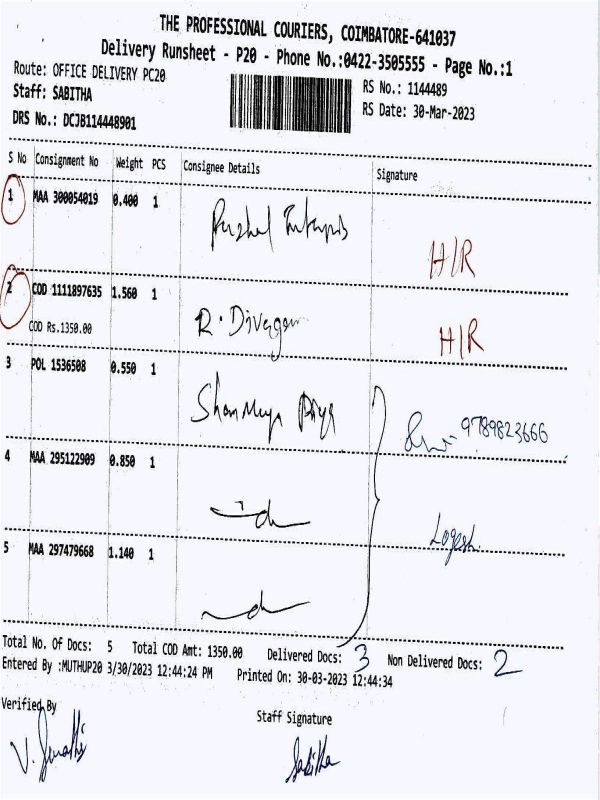 THE PROFESSIONAL COURIERS, COIMBATORE-641037
Delivery Runsheet - P20 - Phone No.:0422-3505555 - Page No.:1
Route: OFFICE DELIVERY PC20
RS No.: 1144489
Staff: SABITHA
RS Date: 30-Mar-2023
DRS No.: DCJB114448901
S No Consignment No Weight PCS Consignee Details Signature
1 MAA 300054019 0.400 1
H/R
2 COD 1111897635 1.560 1 R.
COD Rs.1350.00 H/R
3 POL 1536508 0.550 1 Priya
9789823666
4 MAA 295122909 0.850 1
Logesh
5 MAA 297479668 1.140 1
Total No. Of Docs: 5 Total COD Amt: 1350.00 Delivered Docs: 3 Non Delivered Docs: 2
Entered By :MUTHUP20 3/30/2023 12:44:24 PM Printed On: 30-03-2023 12:44:34
Verified By
Staff Signature
Sabitha